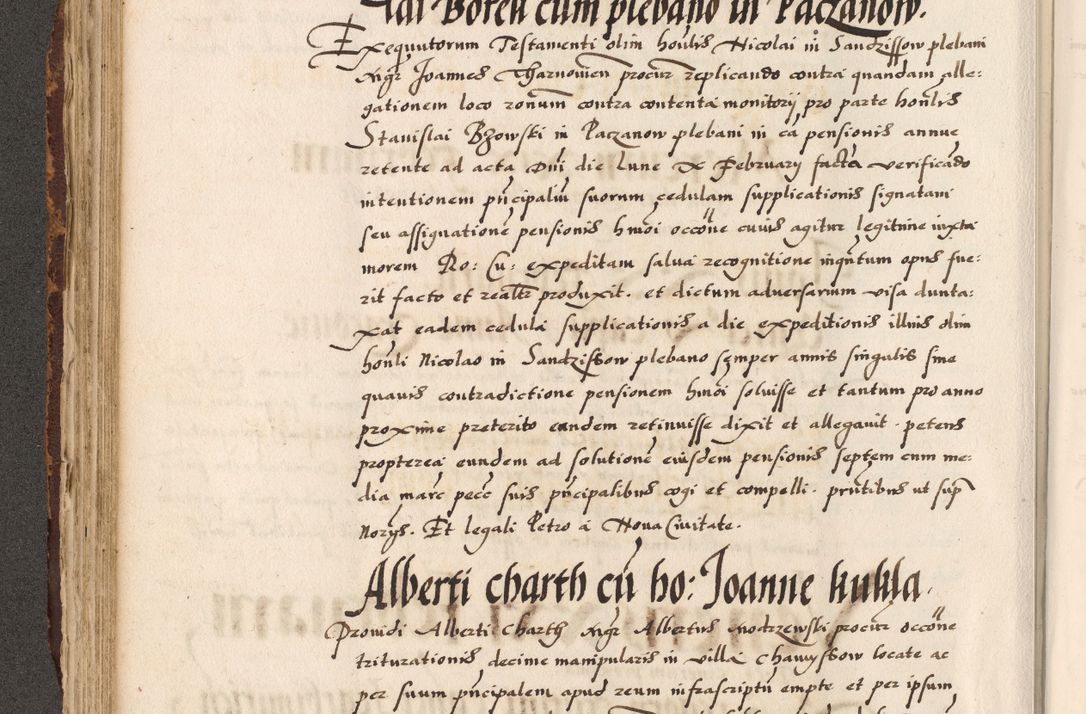 lai Boreĸ cum plebano in Paczanow.
Exequutorum Testamenti olim honlis Nicolai in Sandzissow plebani
Mgr Joannes Tharnowien procur replicando contra quandam alle:
gationem loco ronum contra contenta monitorij pro parte honlis
Stanislai Bzowski in Paczanow plebani in ea pensionis annue
retente ad acta Dni die Lune X February facta verificando
intentionem pncipaliu suorum cedulam supplicationis signatam
seu assignatione pensionis hmoi occone cuius agitur legitime iuxta
morem Ro: Cu: expeditam salua recognitione inqntum opus fue:
rit facto et realr produxit. et dictum adversarium visa dunta:
xat eadem cedula supplicationis a die expeditionis illius olim
honli Nicolao in Sandzissow plebano semper annis singulis sine
quavis contradictione pensionem hmoi soluisse et tantum pro anno
proxime preterito eandem retinuisse dixit et allegavit. petens
propterea eundem ad solutione eiusdem pensionis septem cum me:
dia marc pecc suis pncipalibus cogi et compelli. pntibus ut sup
Norys. Et legali Petro a Nova Civitate.
Alberti charth cu ho: Joanne kukla.
Providi Alberti Charth Mgr Albertus Modrzewski procur occone
triturationis decime manipularis in villa Chawyssow locate ac
per suum pncipalem apud reum infrascriptu empte et per ipsum